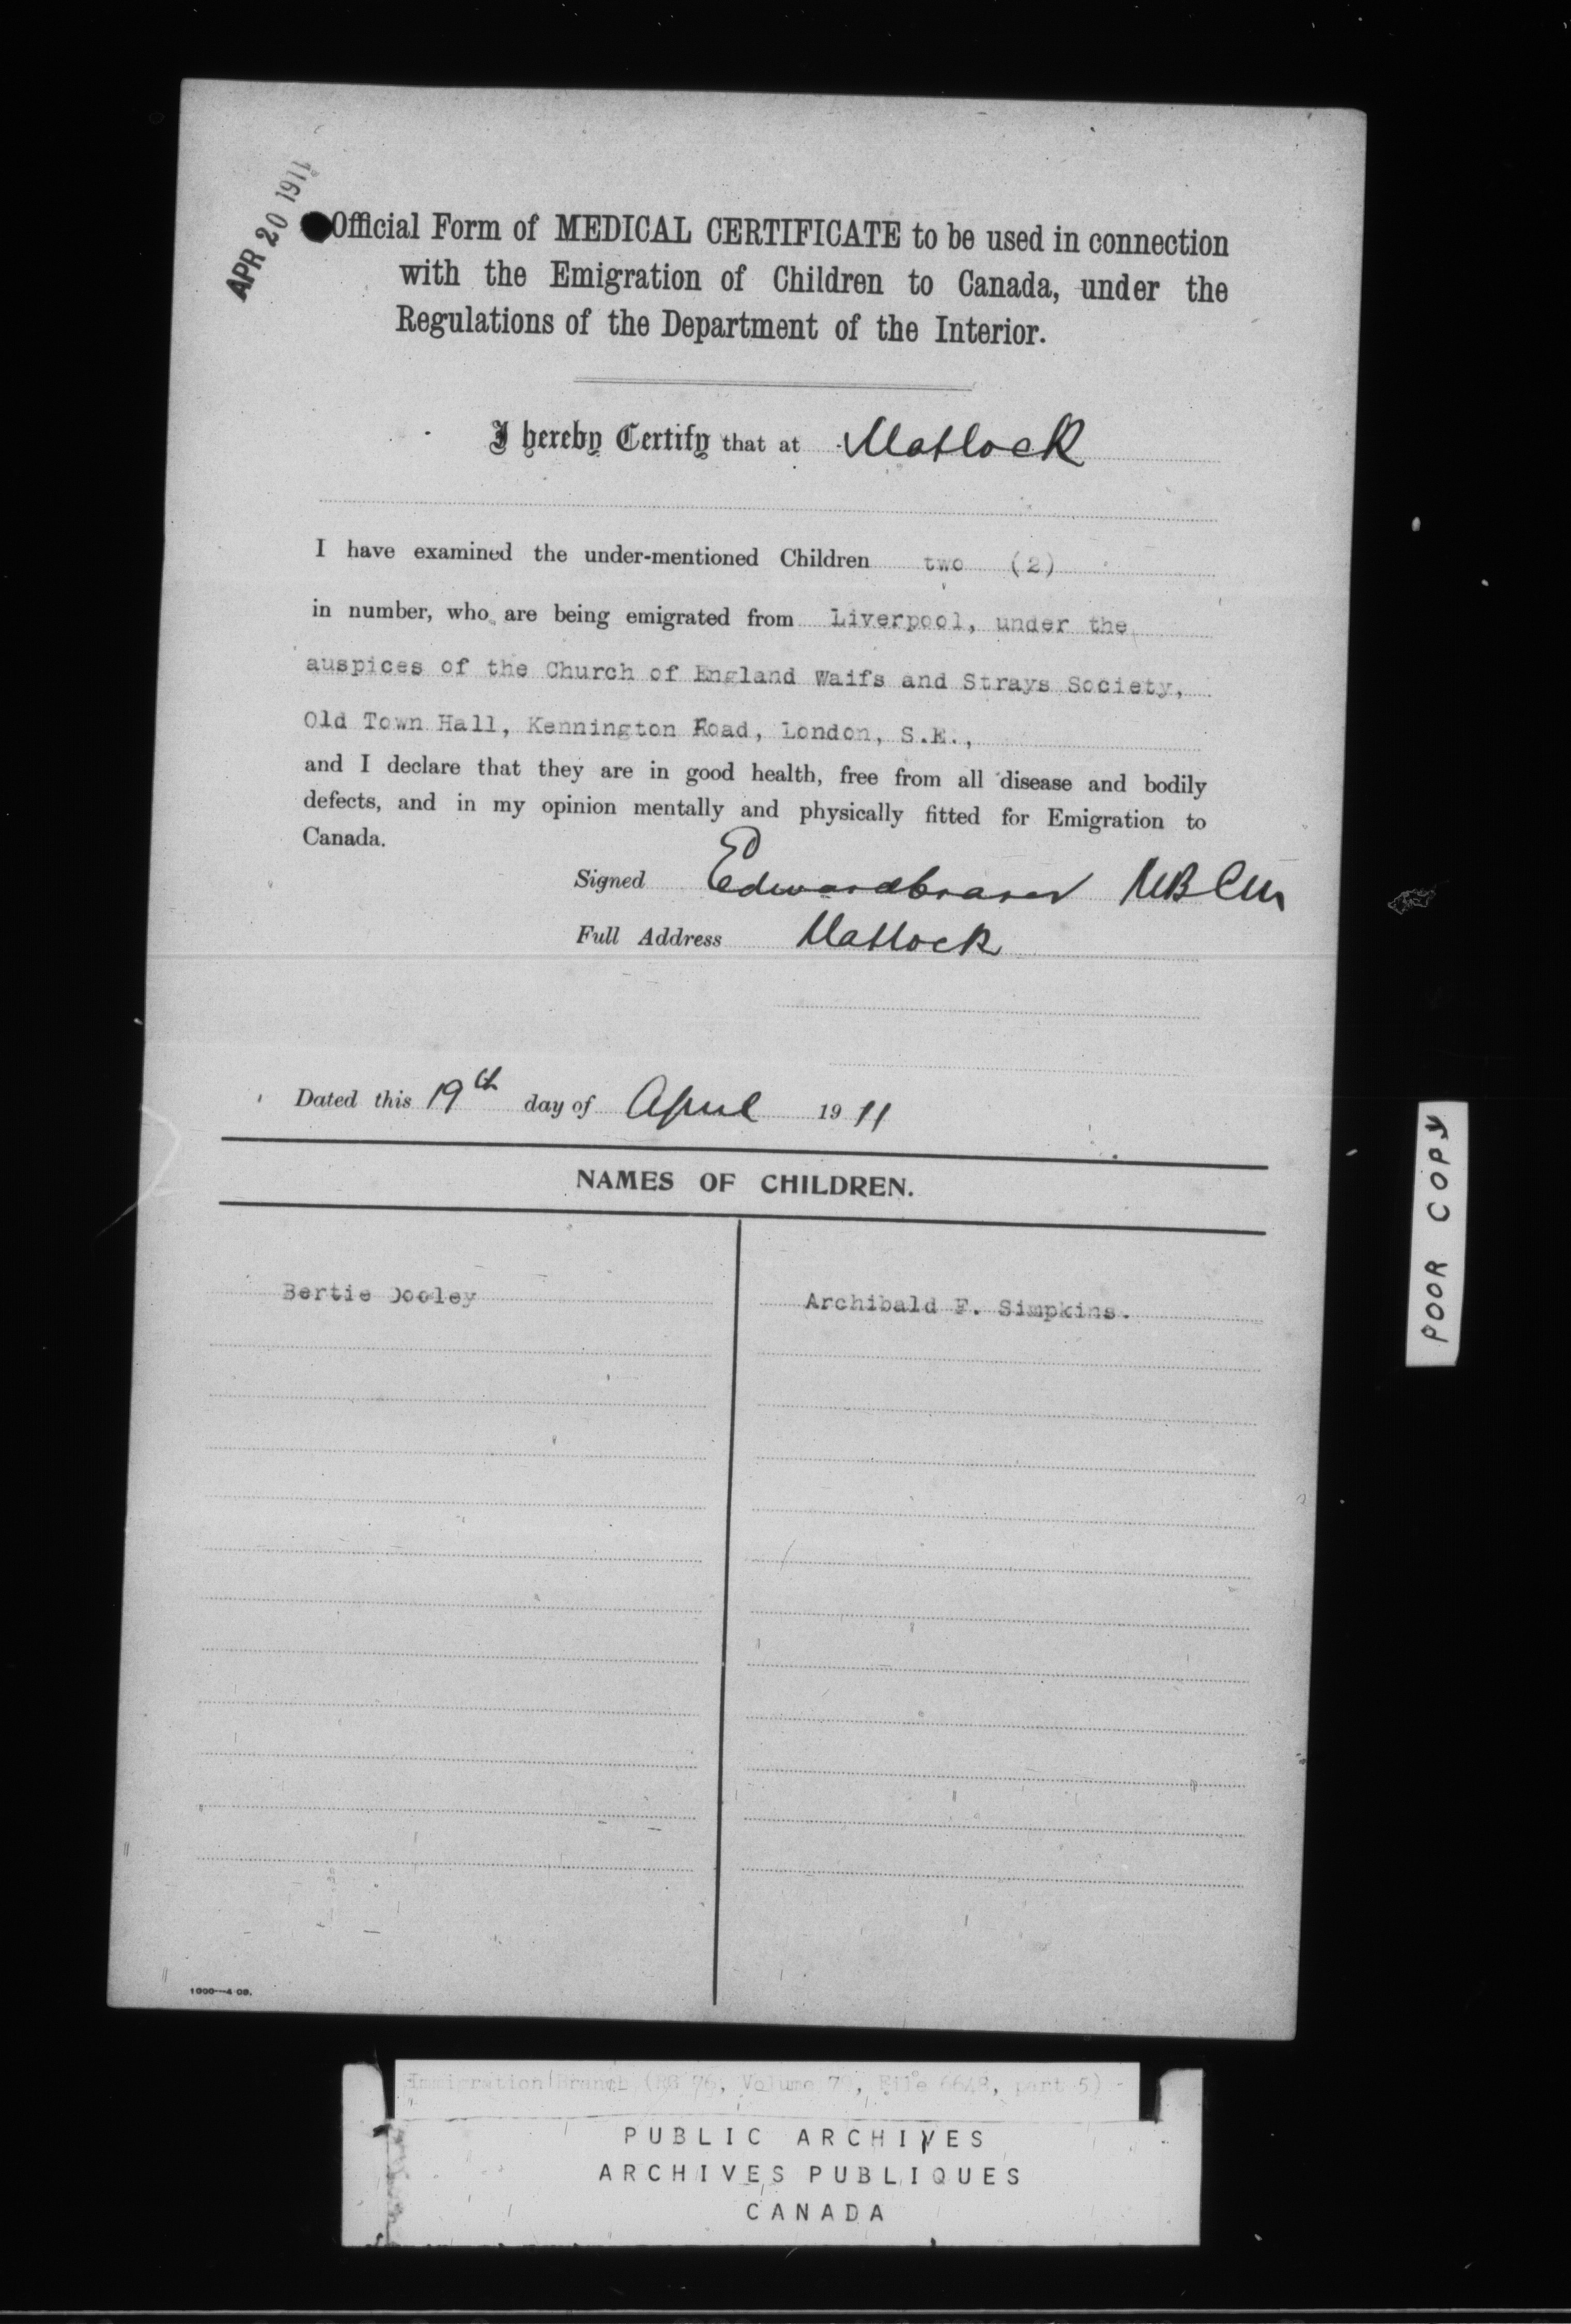 APR 20 1911
Official Form of MEDICAL CERTIFICATE to be used in connection
with the Emigration of Children to Canada, under the
Regulations of the Department of the Interior.
I hereby Certify that at Matlock
I have examined the under-mentioned Children two (2)
in number, who are being emigrated from Liverpool, under the
auspices of the Church of England Waifs and Strays Society,
Old Town Hall, Kennington Road, London, S.E.,
and I declare that they are in good health, free from all disease and bodily
defects, and in my opinion mentally and physically fitted for Emigration to
Canada.
Signed MB CM
Full Address Matlock
Dated this 19th day of April 1911
NAMES OF CHILDREN.
Bertie Dooley
Archibald F. Simpkins.
1000—4 09.
POOR COPY
Immigration Branch (RG 76, Volume 7, File 6648, part 5)
PUBLIC ARCHIVES
ARCHIVES PUBLIQUES
CANADA